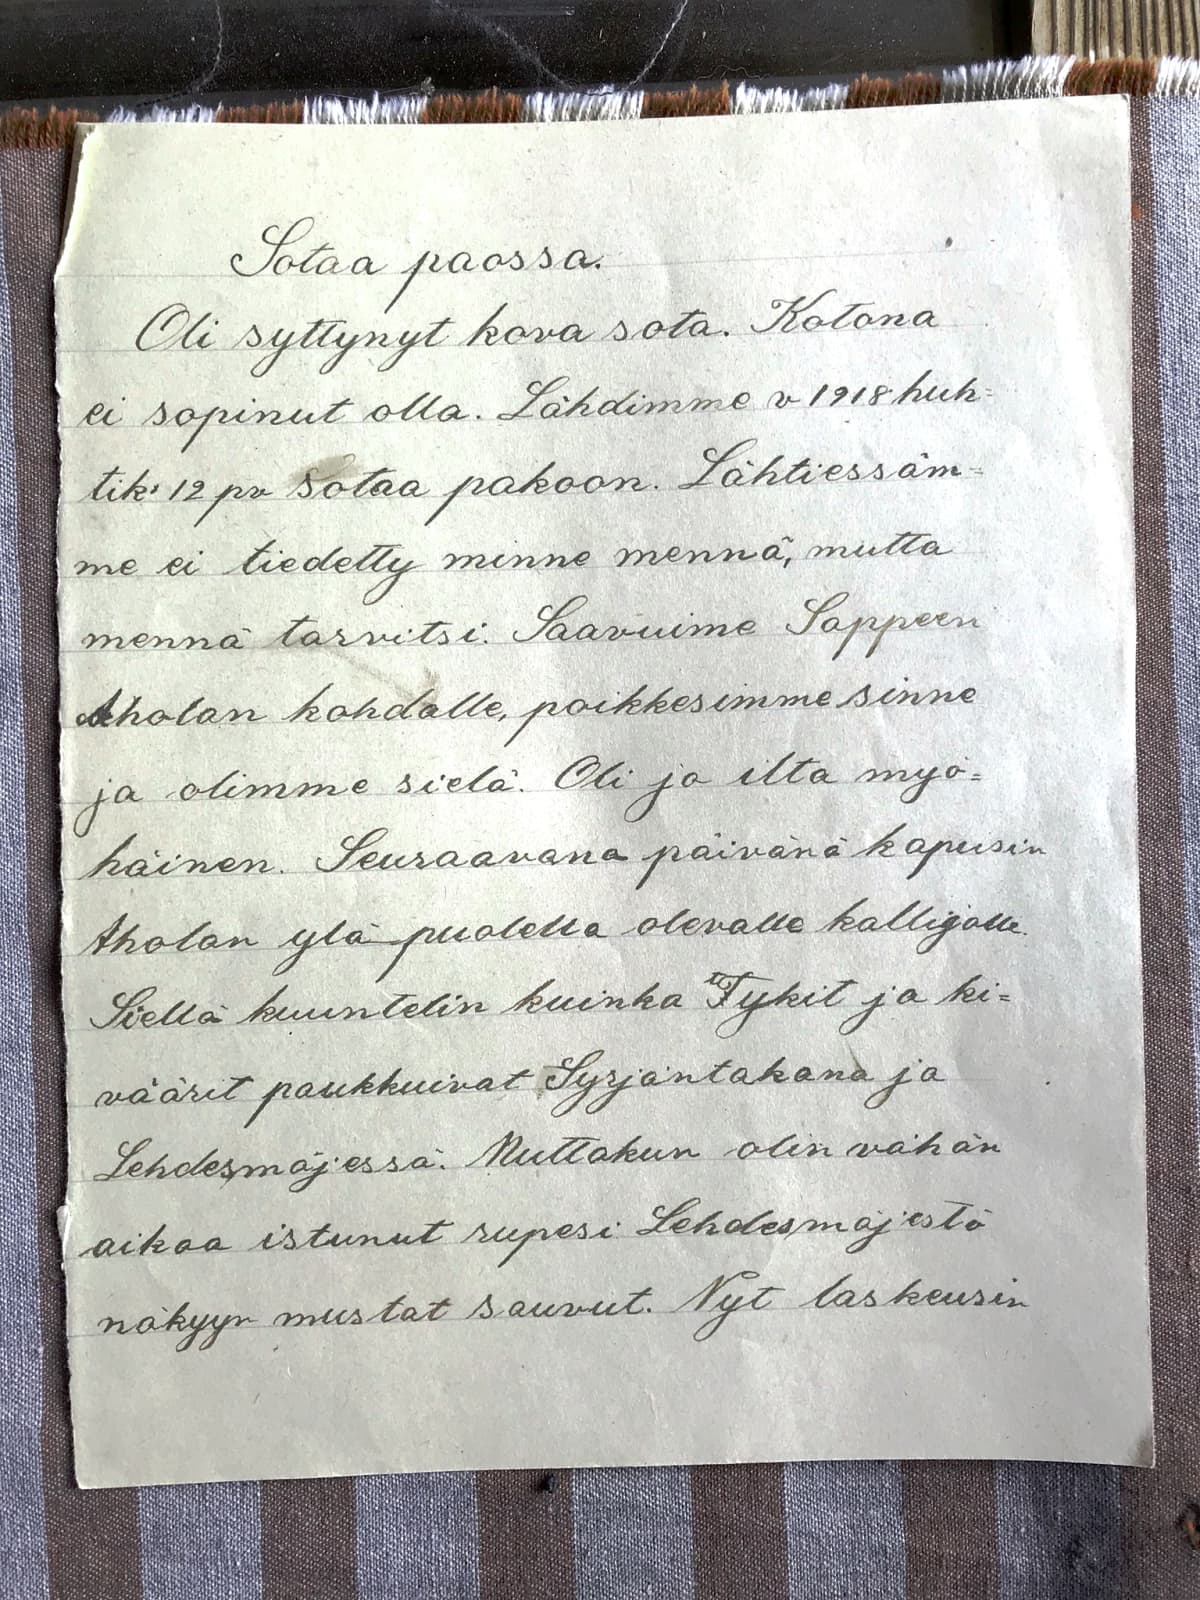 Sotaa paossa.
Oli syttynyt kova sota. Kotona
ei sopinut olla. Lähdimme v 1918 huh=
tik: 12 pv Sotaa pakoon. Lähtiessäm=
me ei tiedetty minne mennä, mutta
mennä tarvitsi. Saavuime Sappeen
Aholan kohdalle, poikkesimme sinne
ja olimme sielä. Oli jo ilta myö=
häinen. Seuraavana päivänä kapusin
Aholan ylä puolella olevalle kallijolle.
Siellä kuuntelin kuinka Tykit ja ki=
väärit paukkuivat Syrjäntakana ja
Lehdesmäjessä. Muttakun olin vähän
aikaa istunut rupesi Lehdesmäjestä
näkyyn mustat sauvut. Nyt laskeusin